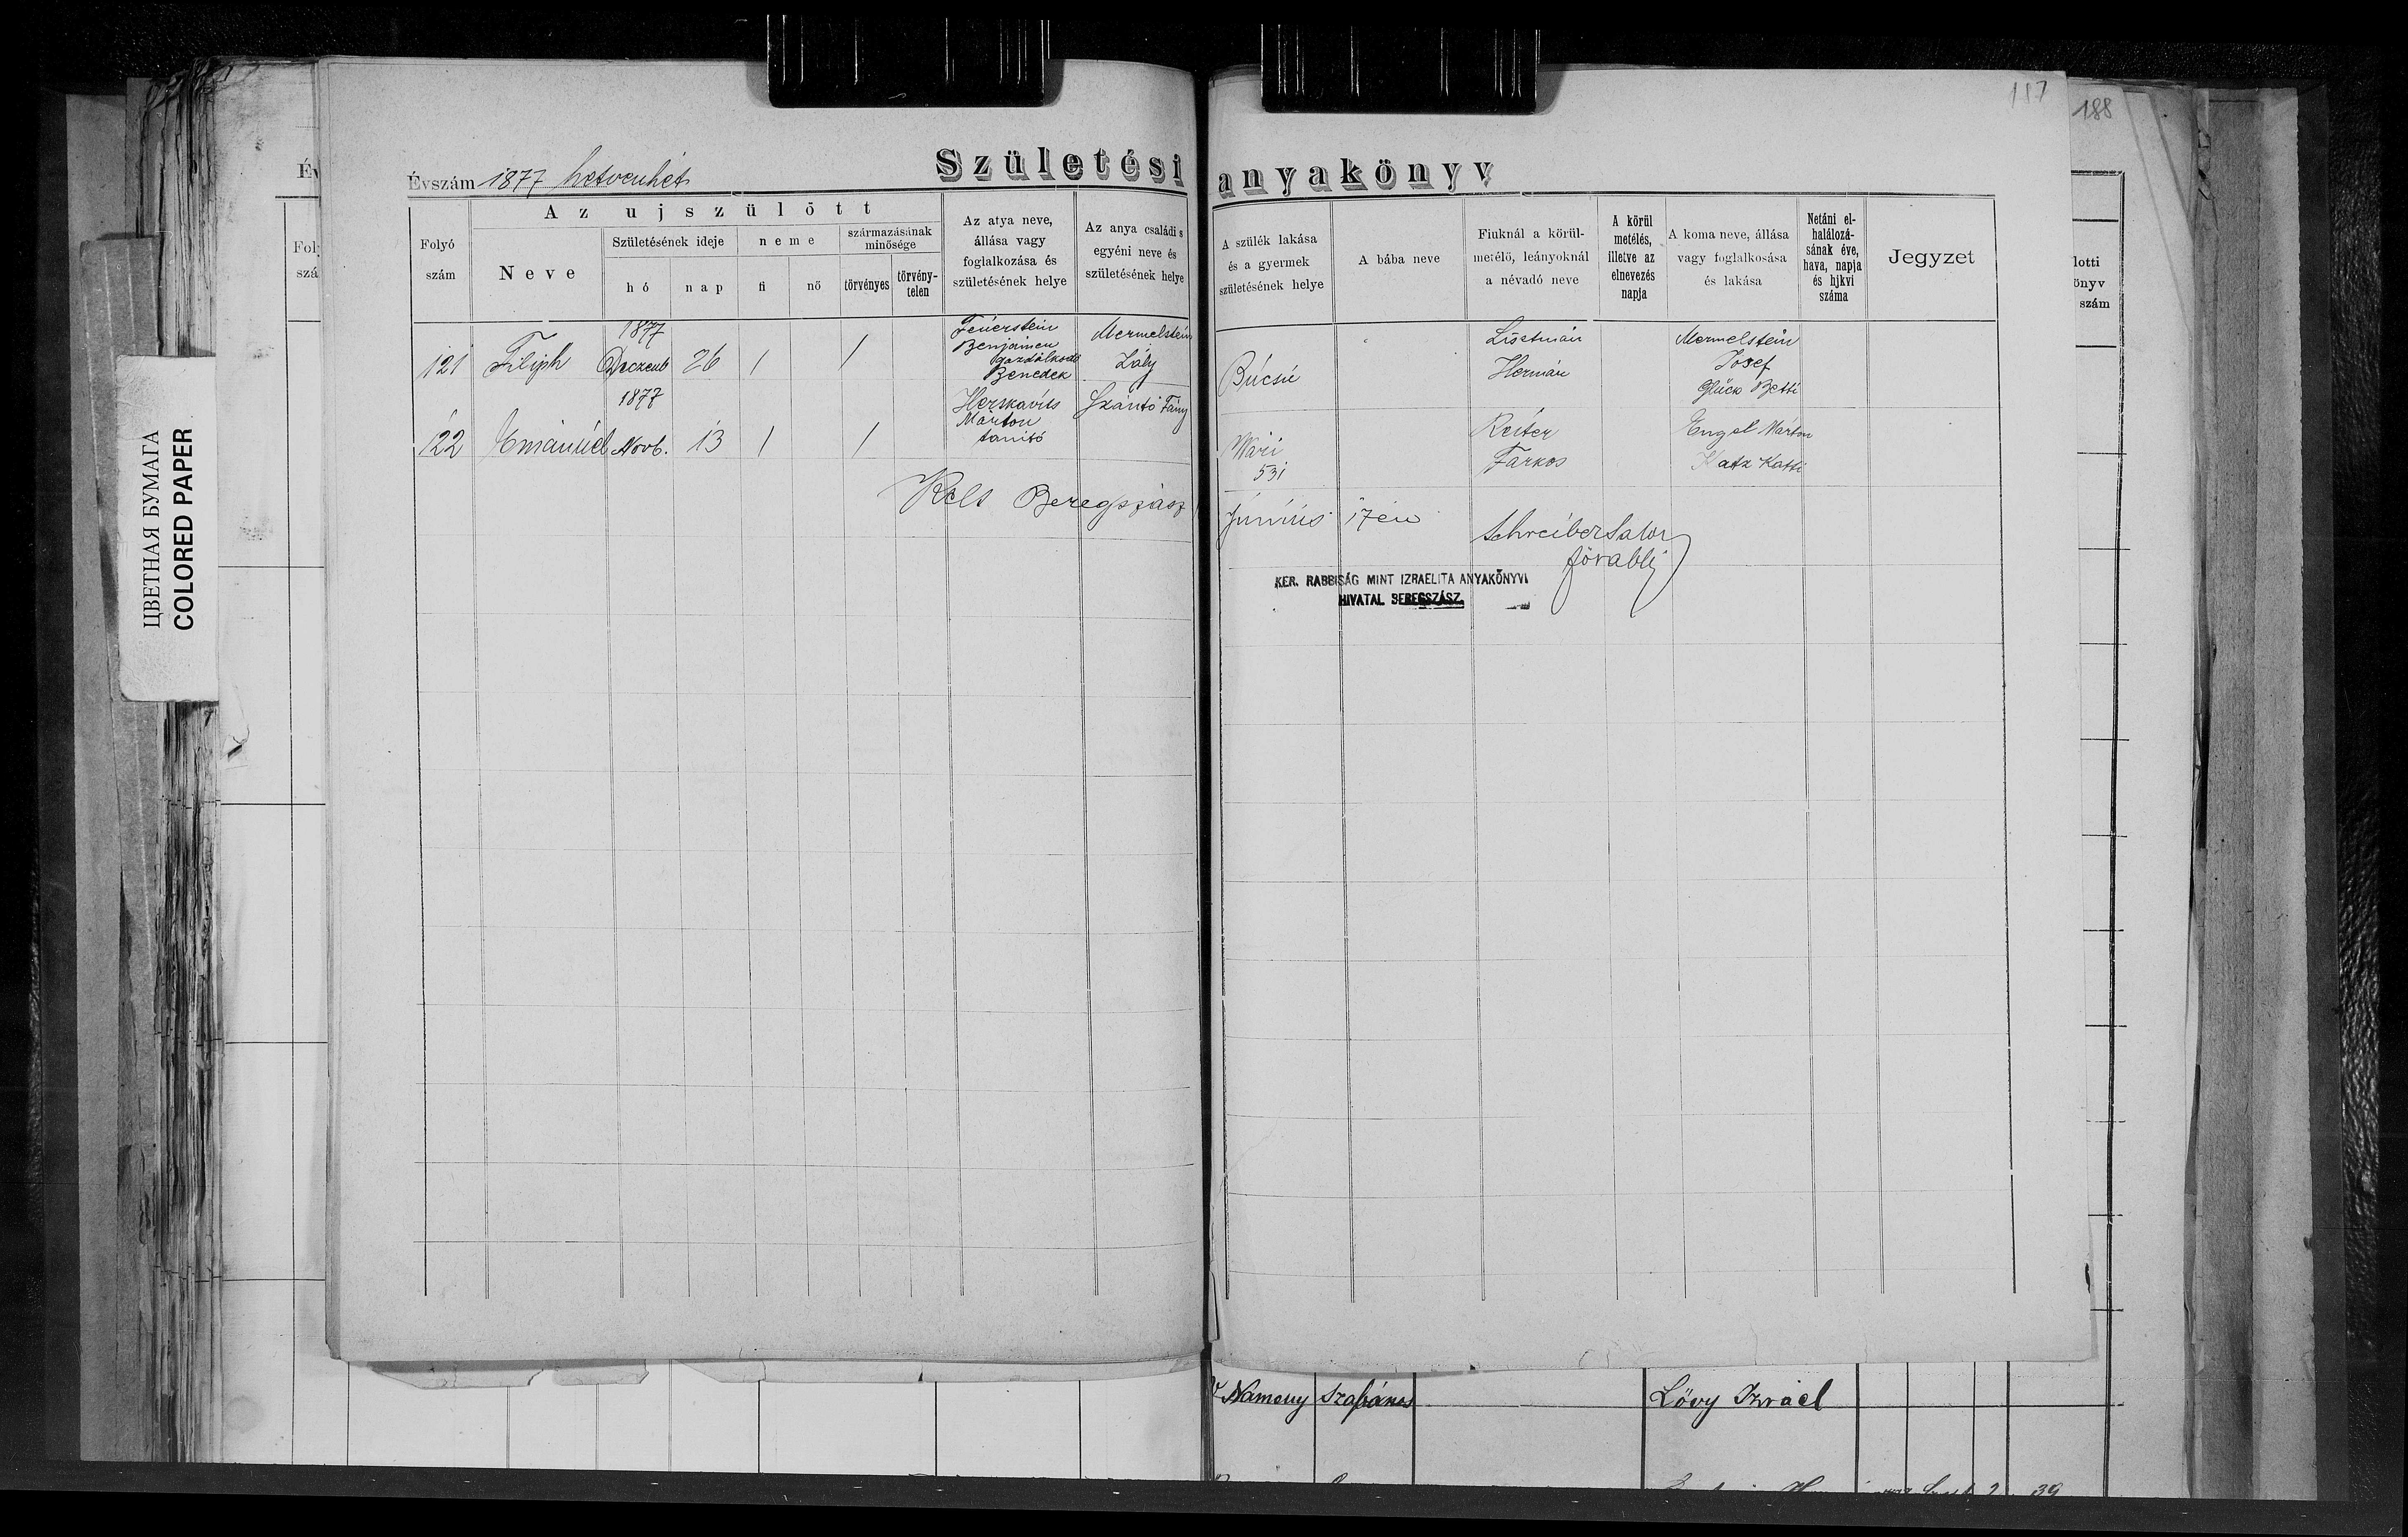 187
188
Születési anyakönyv
Évszám 1877 hetvenhét
Év
Az ujszülött
Folyó szám
Neve
Születésének ideje
hó
nap
neme
fi
nő
származásának minősége
törvényes
törvény-telen
Az atya neve,
állása vagy
foglalkozása és
születésének helye
Az anya családi s
egyéni neve és
születésének helye
A szülék lakása
és a gyermek
születésének helye
A bába neve
Fiuknál a körül-
metélő, leányoknál
a névadó neve
A körül
metélés,
illetve az
elnevezés
napja
A koma neve, állása
vagy foglalkosása
és lakása
Netáni el-
halálozá-
sának éve,
hava, napja
és hjkvi
száma
Jegyzet
lotti
önyv
szám
121 Filiph
1877
Deczemb 26 / /
Feuerstein
Benjamen
Benedek
Mermelstein
Zály
Búcsú
Hermán
Mermelstein
Josef
Glück Betti
122 Emánúel
1877
Novb. 13 / /
Herskavits
Márton
tanitó
Szántó Fány
Vári
531
Reiter
Farkas
Engel Márton
Katz Katti
Kelt Beregszász Június 17én
Schreiber Salon
főrabbi
KER. RABBISÁG MINT IZRAELITA ANYAKÖNYVI
HIVATAL BEREGSZÁSZ.
ЦВЕТНАЯ БУМАГА
COLORED PAPER
V Nameny
Lövy Izráel
39